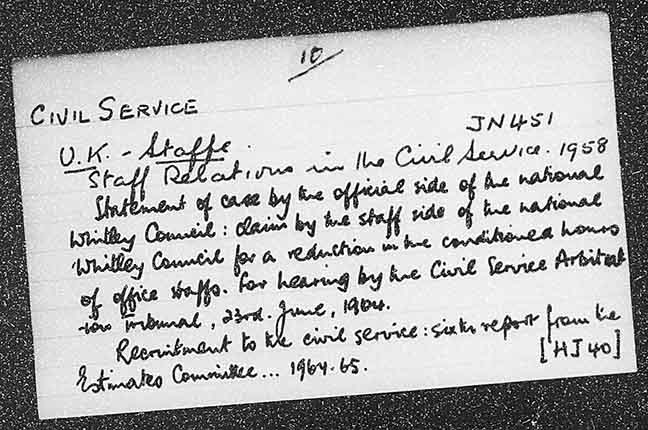 10
CIVIL SERVICE
JN451
U.K. - Staffs.
Staff Relations in the Civil Service. 1958
Statement of case by the official side of the national
Whitley Council: claim by the staff side of the national
Whitley Council for a reduction in the conditioned hours
of office staffs. For hearing by the Civil Service Arbitrat
-ion Tribunal, 23rd. June, 1964.
Recruitment to the civil service: sixth report from the
Estimates Committee... 1964-65.
[HJ40]